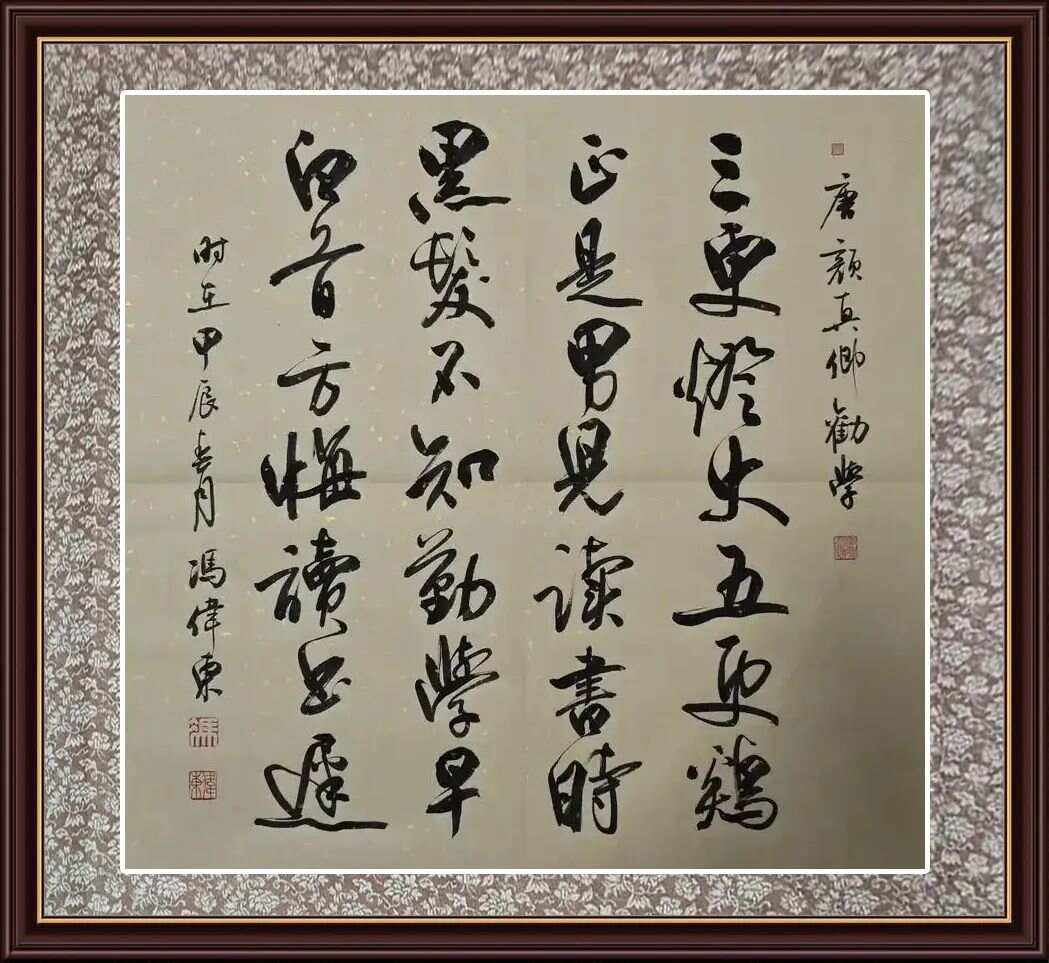 唐顏真卿勸學
三更燈火五更鷄
正是男児读書時
黑髮不知勤學早
白首方悔讀书遲
时在甲辰春月馮偉東